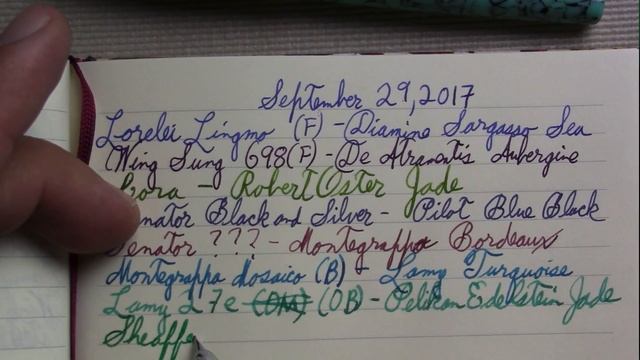 September 29, 2017
Lorelei Lingmo (F) - Diamine Sargasso Sea
Wing Sung 698(F) - De Atramentis Aubergine
- Robert Oster Jade
Black and Silver - Pilot Blue Black
??? - Montegrappa Bordeaux
Montegrappa Mosaico (B) - Lamy Turquoise
Lamy L7e (OM) (OB) - Pelikan Edelstein Jade
Sheaffe